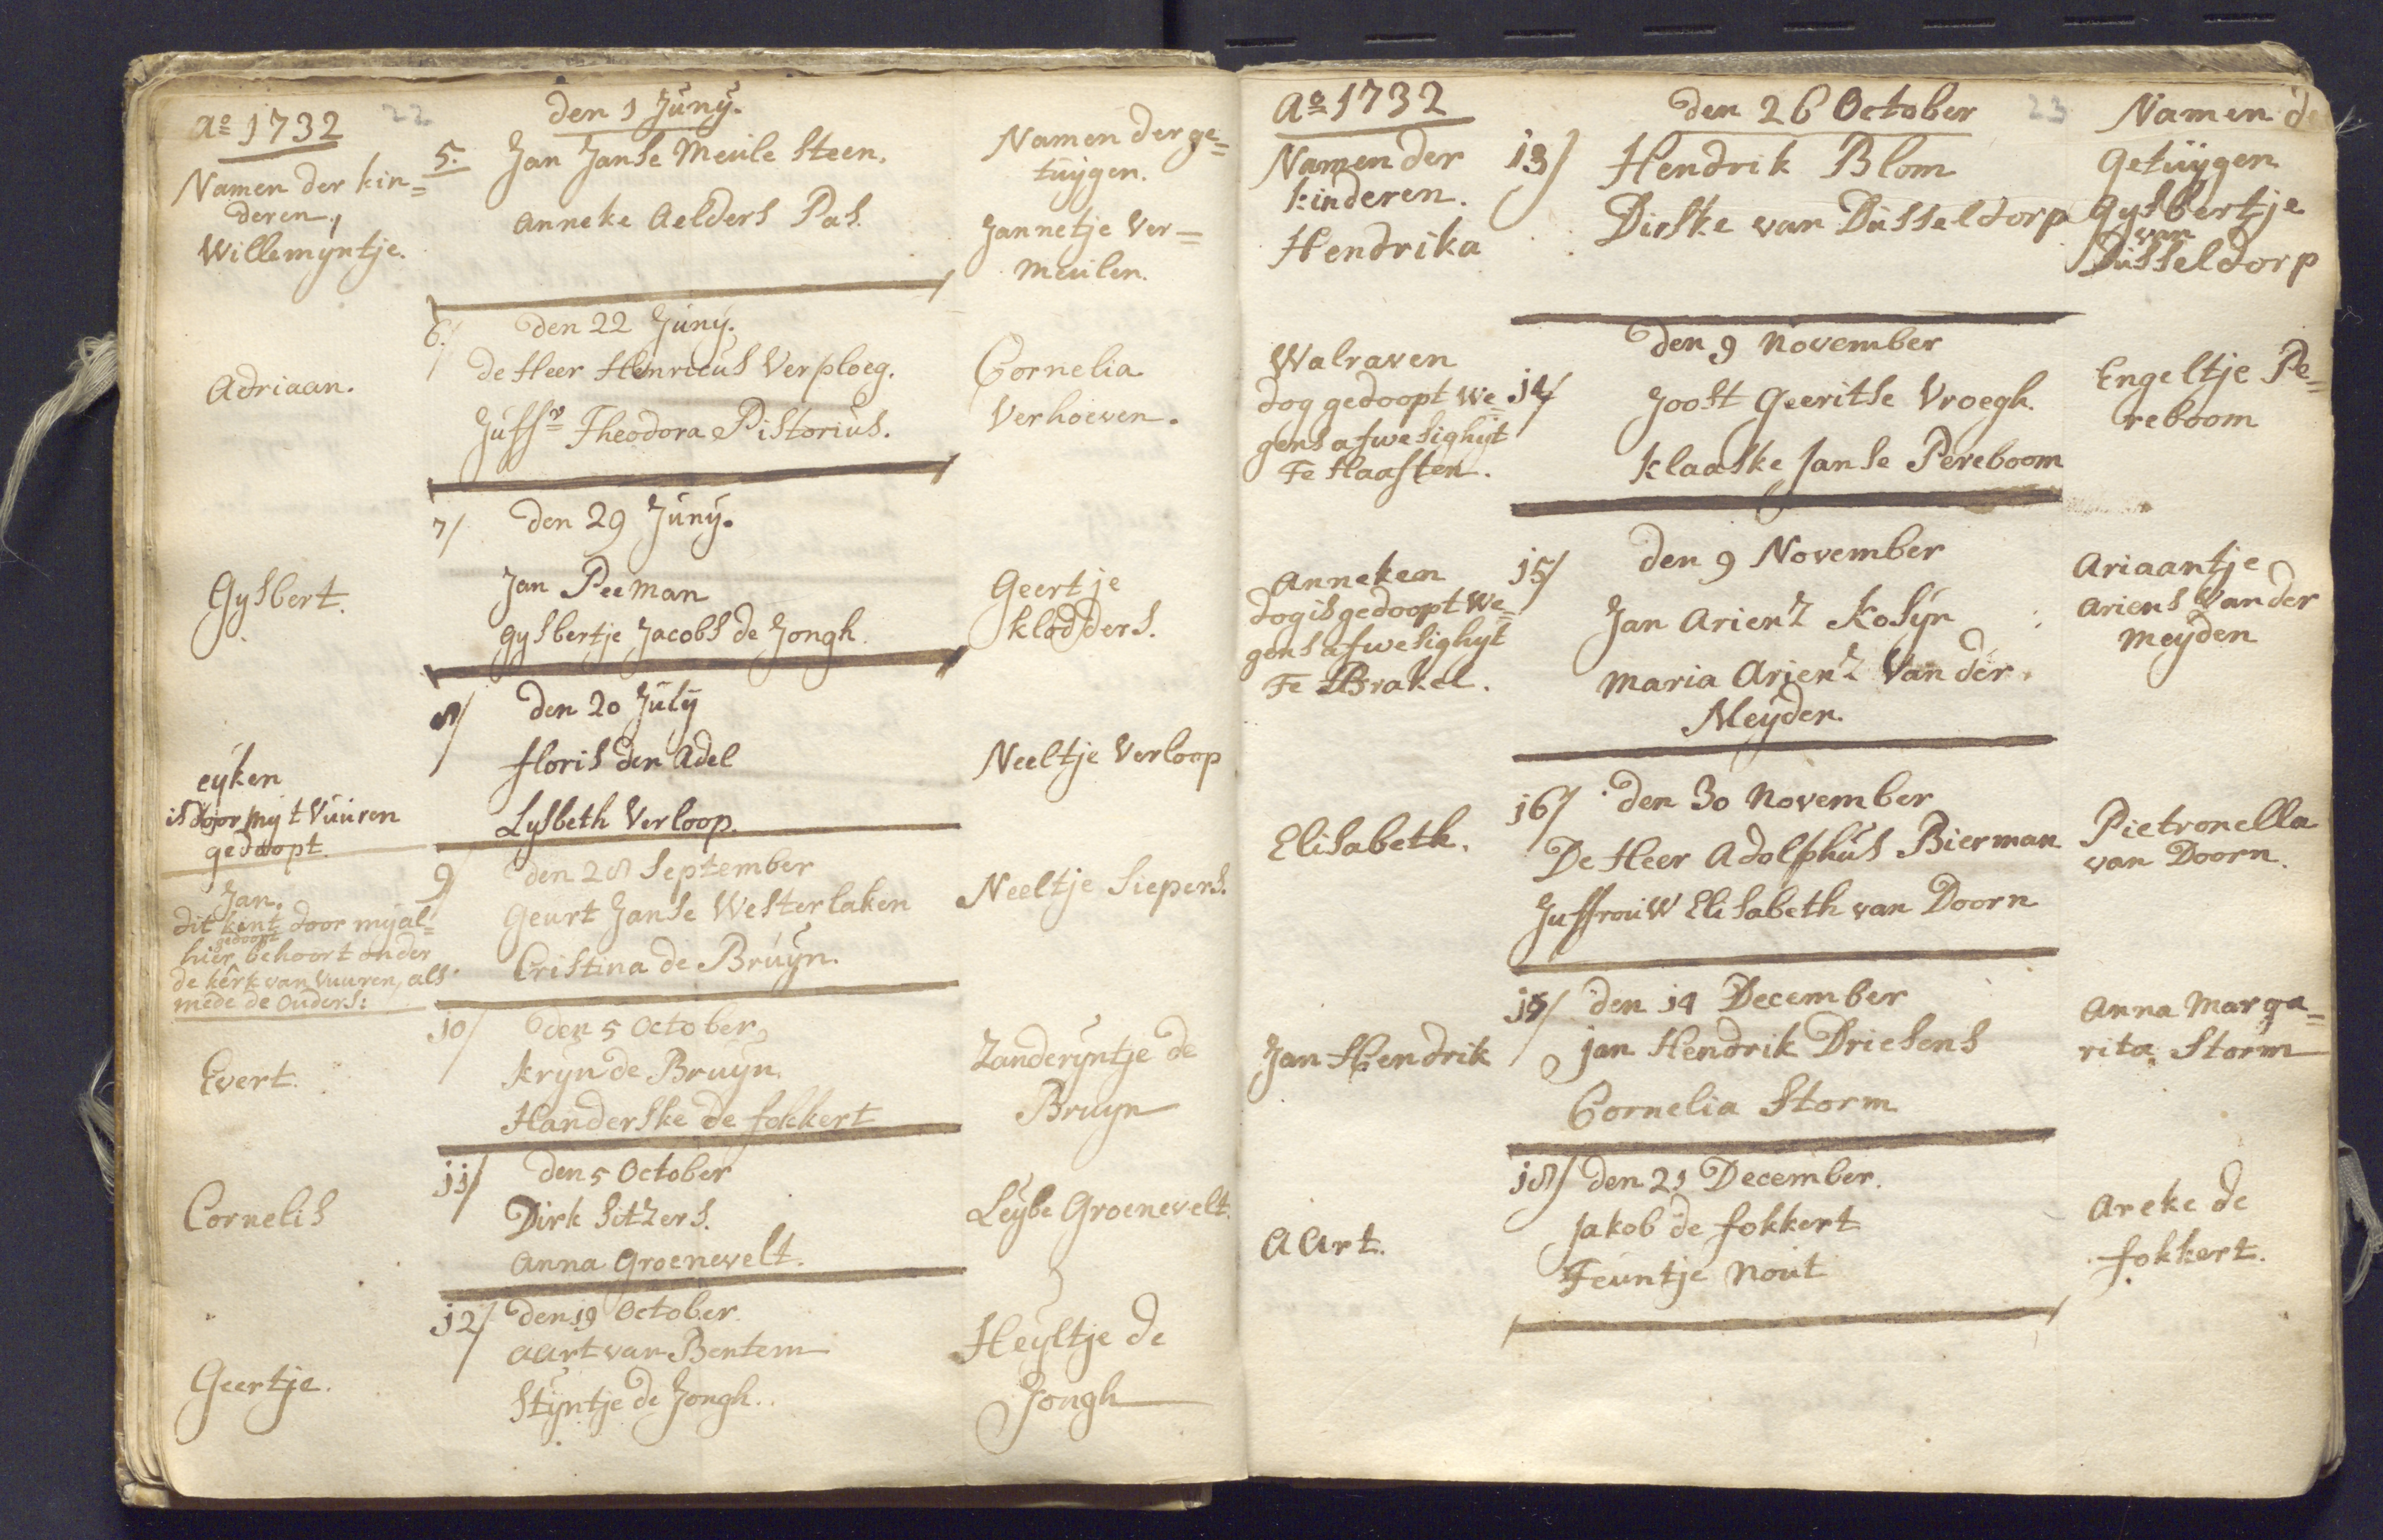 Ao 1732
22
den 1 Juny.
Namen der kin=
deren.
Willemyntje.
5.
Jan Janse Meule Steen.
Anneke Aelders Pas.
Namen der ge=
tuygen.
Jannetje Ver=
meulen.
6/
den 22 Juny.
Adriaan.
de Heer Henricus Verploeg.
Juffr Theodora Pistorius.
Cornelia
Verhoeven.
7/
den 29 Juny.
Gysbert.
Jan Peeman
Gysbertje Jacobs de Jongh.
Geertje
Klodders.
8/
den 20 July
eyken
is door my t Vuuren
gedoopt.
floris den Adel
Lysbeth Verloop.
Neeltje Verloop
9/
den 28 September
Jan.
dit kint door my al=
gedoopt
hier behoort onder
de kerk van Vuuren, als
mede de Ouders:
Geurt Janse Westerlaken
Cristina de Bruyn.
Neeltje Siepers.
10/
den 5 October
Evert.
Kryn de Bruyn.
Handerske de fokkert
Zanderyntje de
Bruyn
11/
den 5 October
Cornelis
Dirk Sitzers.
Anna Groenevelt.
Leybe Groenevelt.
12/
den 19 October
Geertje.
Aart van Bentem
Styntje de Jongh.
Heyltje de
Jongh
Ao 1732
den 26 October
23
Namen de
Namen der
kinderen.
Hendrika
13/
Hendrik Blom
Dirske van Dusseldorp
Getuygen
Gysbertje
van
Dusseldorp
den 9 November
Walraven
dog gedoopt we=
gens afwesighyt
Te Haaften.
14/
Joost Geeritse Vroegh.
Klaaske Janse Pereboom
Engeltje Pe=
reboom
15/
den 9 November
Anneken
dog is gedoopt we=
gens afwesighyt
Te Brakel.
Jan Arienz Kosyn
Maria Arienz Van der
Meyden.
Ariaantje
Ariens Van der
Meyden
16/
den 30 November
Elisabeth.
De Heer Adolphus Bierman
Juffrouw Elisabeth van Doorn
Pietronella
van Doorn.
17/
den 14 December
Jan Hendrik
Jan Hendrik Driesens
Cornelia Storm
Anna Marga=
rita Storm
18/
den 21 December.
Aart.
Jakob de fokkert
Teuntje Nout
Areke de
fokkert.